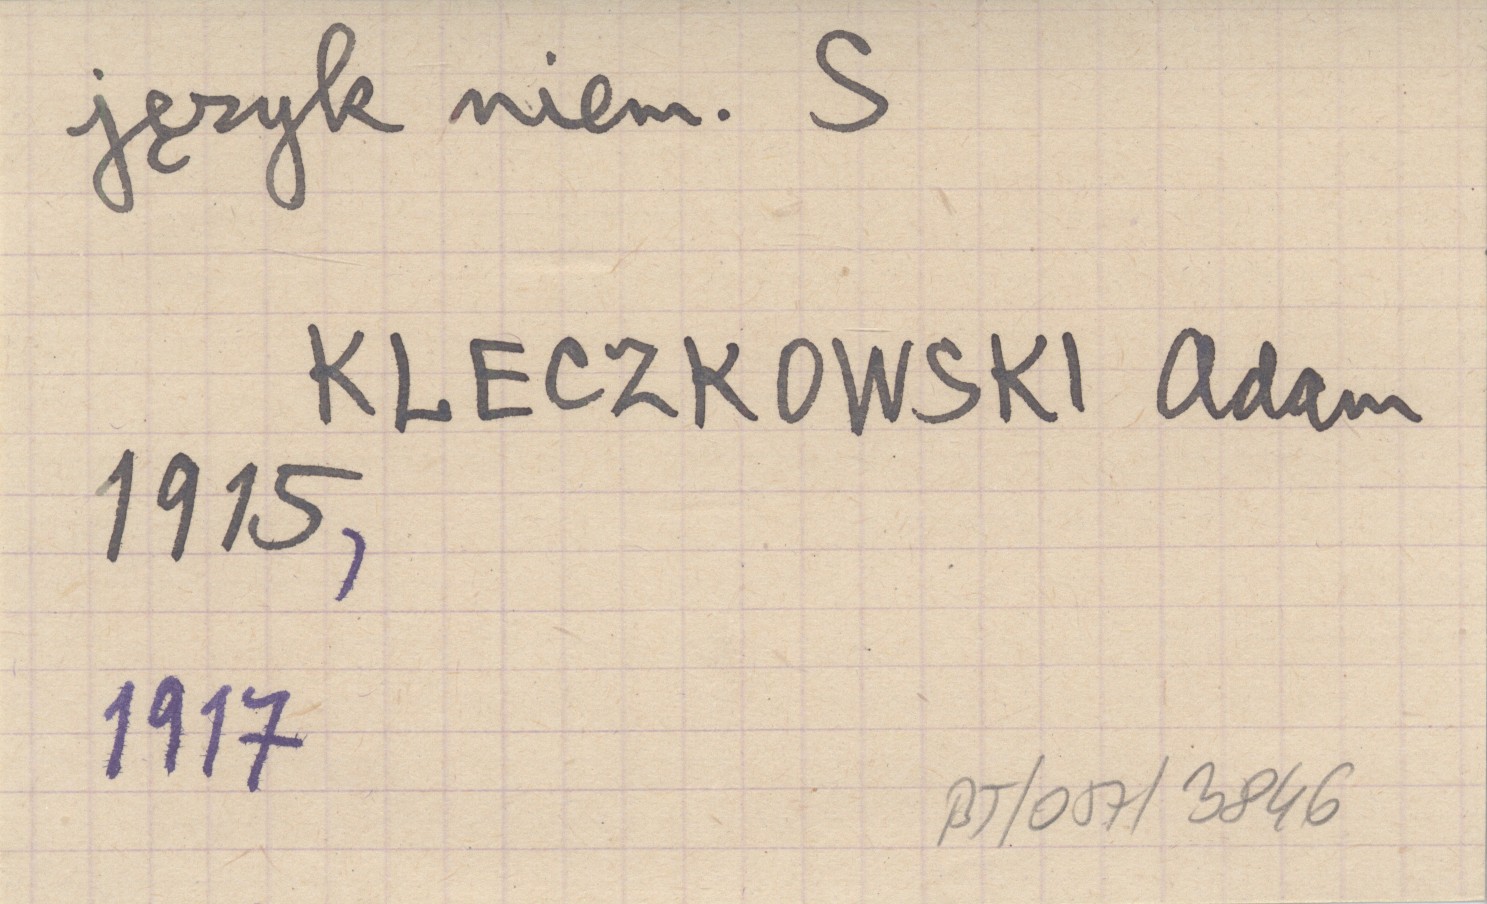 język niem. S
KLECZKOWSKI Adam
1915,
1917
BT/057/3846